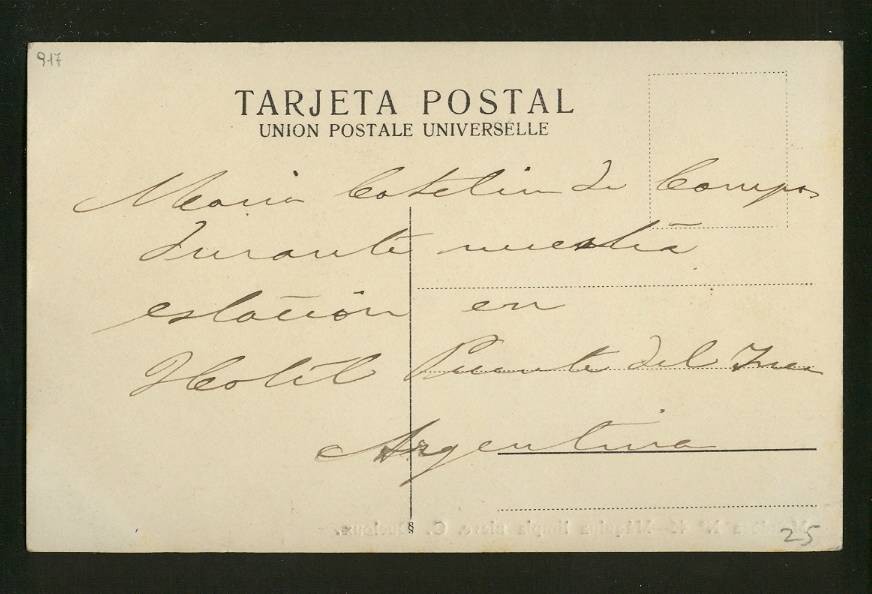 917
TARJETA POSTAL
UNION POSTALE UNIVERSELLE
Maria de Campos
Durante nuestra
estación en
Hotel Puente del Inca
Argentina
§
25